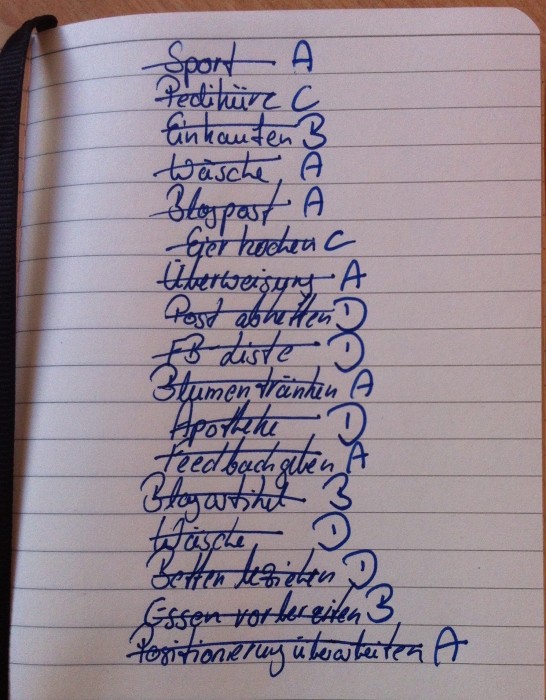 Sport A
Pediküre C
Einkaufen B
Wäsche A
Blogpost A
Eier kochen C
Überweisung A
Post abheften D
FB-Liste D
Blumen tränken A
Apotheke D
Feedback geben A
Blogartikel B
Wäsche D
Betten beziehen D
Essen vorbereiten B
Positionierung überarbeiten A